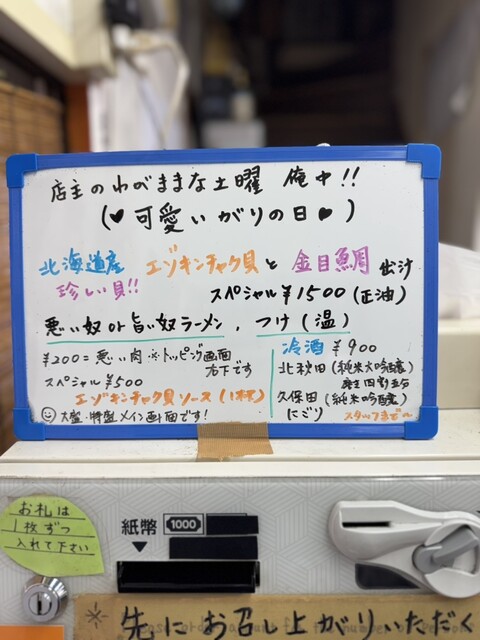 店主のわがままな土曜 俺中!!
(♥可愛いがりの日♥)
北海道産 エゾキンチャク貝と 金目鯛 出汁
珍しい貝!! スペシャル¥1500(正油)
悪い奴or旨い奴ラーメン、つけ(温)
¥200=悪い肉 ※トッピング画面
右下です
スペシャル¥500
エゾキンチャク貝ソース(1杯)
大盛・特盛メイン画面です!
冷酒 ¥900
北秋田(純米大吟醸)
久保田(純米吟醸)
にごり スタッフまで
お札は
1枚ずつ
入れて下さい
紙幣 1000
先にお召し上がりいただく